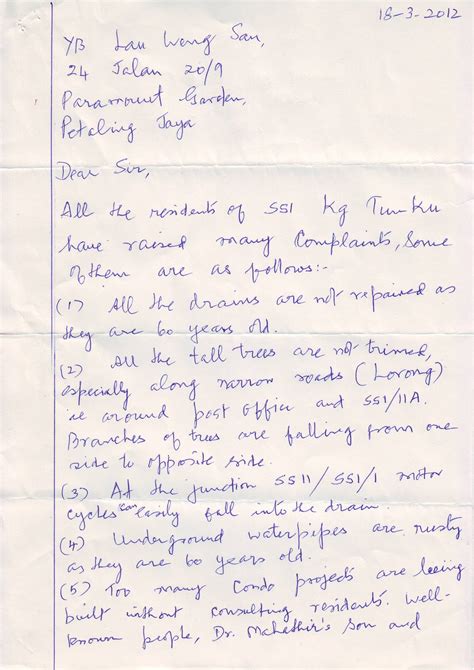 18-3-2012
YB Lau Weng San,
24 Jalan 20/9
Paramount Garden,
Petaling Jaya
Dear Sir,
All the residents of SS1 Kg Tunku
have raised many Complaints, Some
of them are as follows:-
(1) All the drains are not repaired as
they are 60 years old.
(2) All the tall trees are not trimmed,
especially along narrow roads (Lorong)
ie around post office and SS1/11A.
Branches of trees are falling from one
side to opposite side.
(3) At the junction SS11/SS1/1 motor
cycles can easily fall into the drain.
(4) Underground waterpipes are rusty
as they are 60 years old.
(5) Too many Condo projects are being
built without consulting residents. Well-
known people, Dr. Mahathir's son and